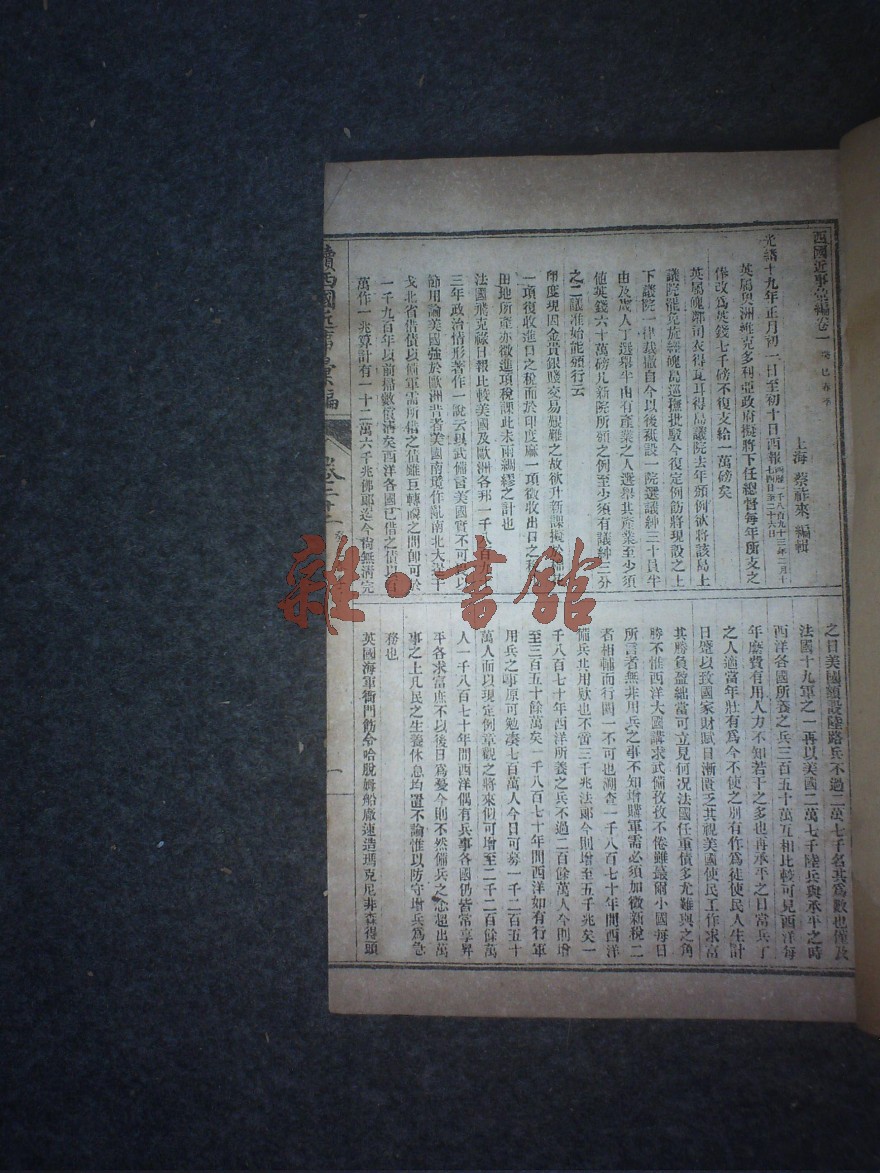 西國近事彙編卷一 癸巳春季
上海 蔡祚來 編輯
光緒十九年正月初一日至初十日西報 西歷一千八百九十三年二月十七四日至二十六日
英屬奧洲維克多利亞政府擬將下任總督每年所支之
俸改為英錢七千磅不復支給一萬磅矣
英屬魄鄰司衣得瓦耳得島議院去年頒例欲將該島上
議院
下議院一律裁撤自今以後祗設一院選議紳三十員半
由及歲人丁選舉半由有產業之人選舉其產業至少須
值英錢六十萬磅凡新院所頒之例至少須有議紳三分
之二議准始能頒行云
印度現因金貴銀賤交易艱難之故欲升新課擬
一項復收進口之稅而於印度麻一項徵收出口之稅
田地所產亦徵進項稅課此未雨綢繆之計也
法國飛克祿日報比較美國及歐洲各邦一千八百九十
三年政治情形著作一說云以武備言美國實不可
節用論美國強於歐洲昔者美國南境作亂南北大
戈北省借債以備軍需所借之值雖巨轉瞬之間即可於
一千九百年以前掃數償清矣西洋各國已借之債
萬作一兆算計有一十二萬六千兆佛郎迄今尚無清完
續西國近事彙編
卷二十一
之日美國額設陸路兵不過二萬七千名其為數也僅及
法國十九軍之一再以美國二萬七千陸兵與承平之時
西洋各國所養之兵三百五十萬互相比較可見西洋每
年糜費有用人力不知若干之多也再承平之日當兵丁
之人適當年壯有為今不使之別有作為徒使民人生計
日蹙以致國家財賦日漸匱乏其視美國使民工作求富
其勝負盈絀當可立見何況法國任重債多尤難與之角
勝不惟西洋大國講求武備孜孜不倦雖蕞爾小國每日
所言者無非用兵之事不知增購軍需必須加徵新稅二
者相輔而行闕一不可也溯查一千八百七十年間西洋
備兵共用歀也不啻三千兆法郎今則增至五千兆矣一
千八百七十年西洋所養之兵不過二百餘萬人今則增
至三百五十餘萬矣一千八百七十年間西洋如有行軍
用兵之事原可勉湊七百萬人今日可募一千二百五十
萬人而以現定例章觀之將來似可增至二千二百餘萬
人一千八百七十年間西洋偶有兵事各國仍皆常享昇
平各求富庶不以後日為憂今則不然備兵之念超出萬
事之上凡民之生養休息均置不論惟以防守增兵為急
務也
英國海軍衙門飭令哈脫姆船廠速造瑪克尼非森得頭
一
雜·書館